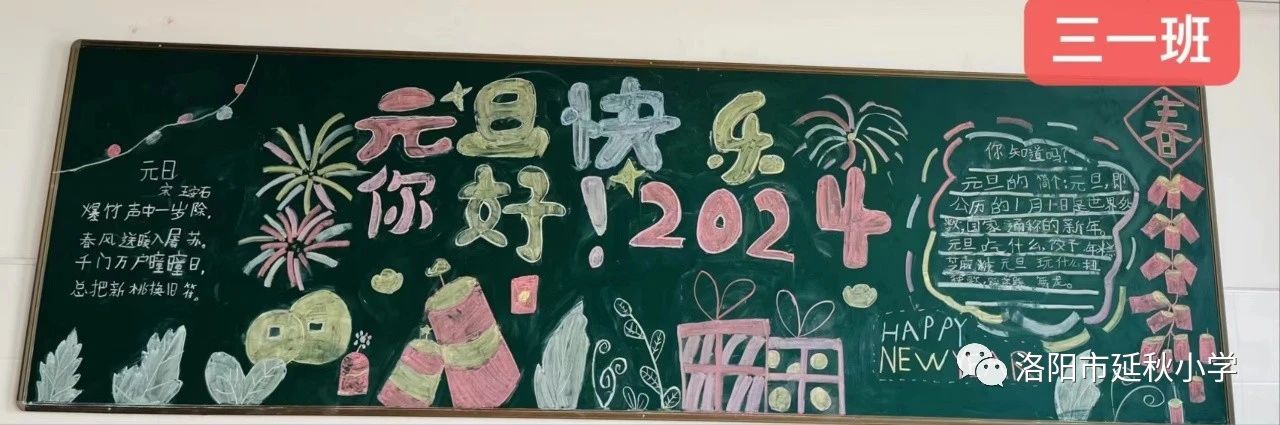 三一班
元旦快乐
你好！2024
元日
宋 王安石
爆竹声中一岁除，
春风送暖入屠苏。
千门万户曈曈日，
总把新桃换旧符。
你知道吗？
元旦的简介：元旦，即
公历的1月1日是世界多
数国家通称的新年。
元旦吃什么 饺子 年糕
元旦玩什么
春
HAPPY
NEW
洛阳市延秋小学